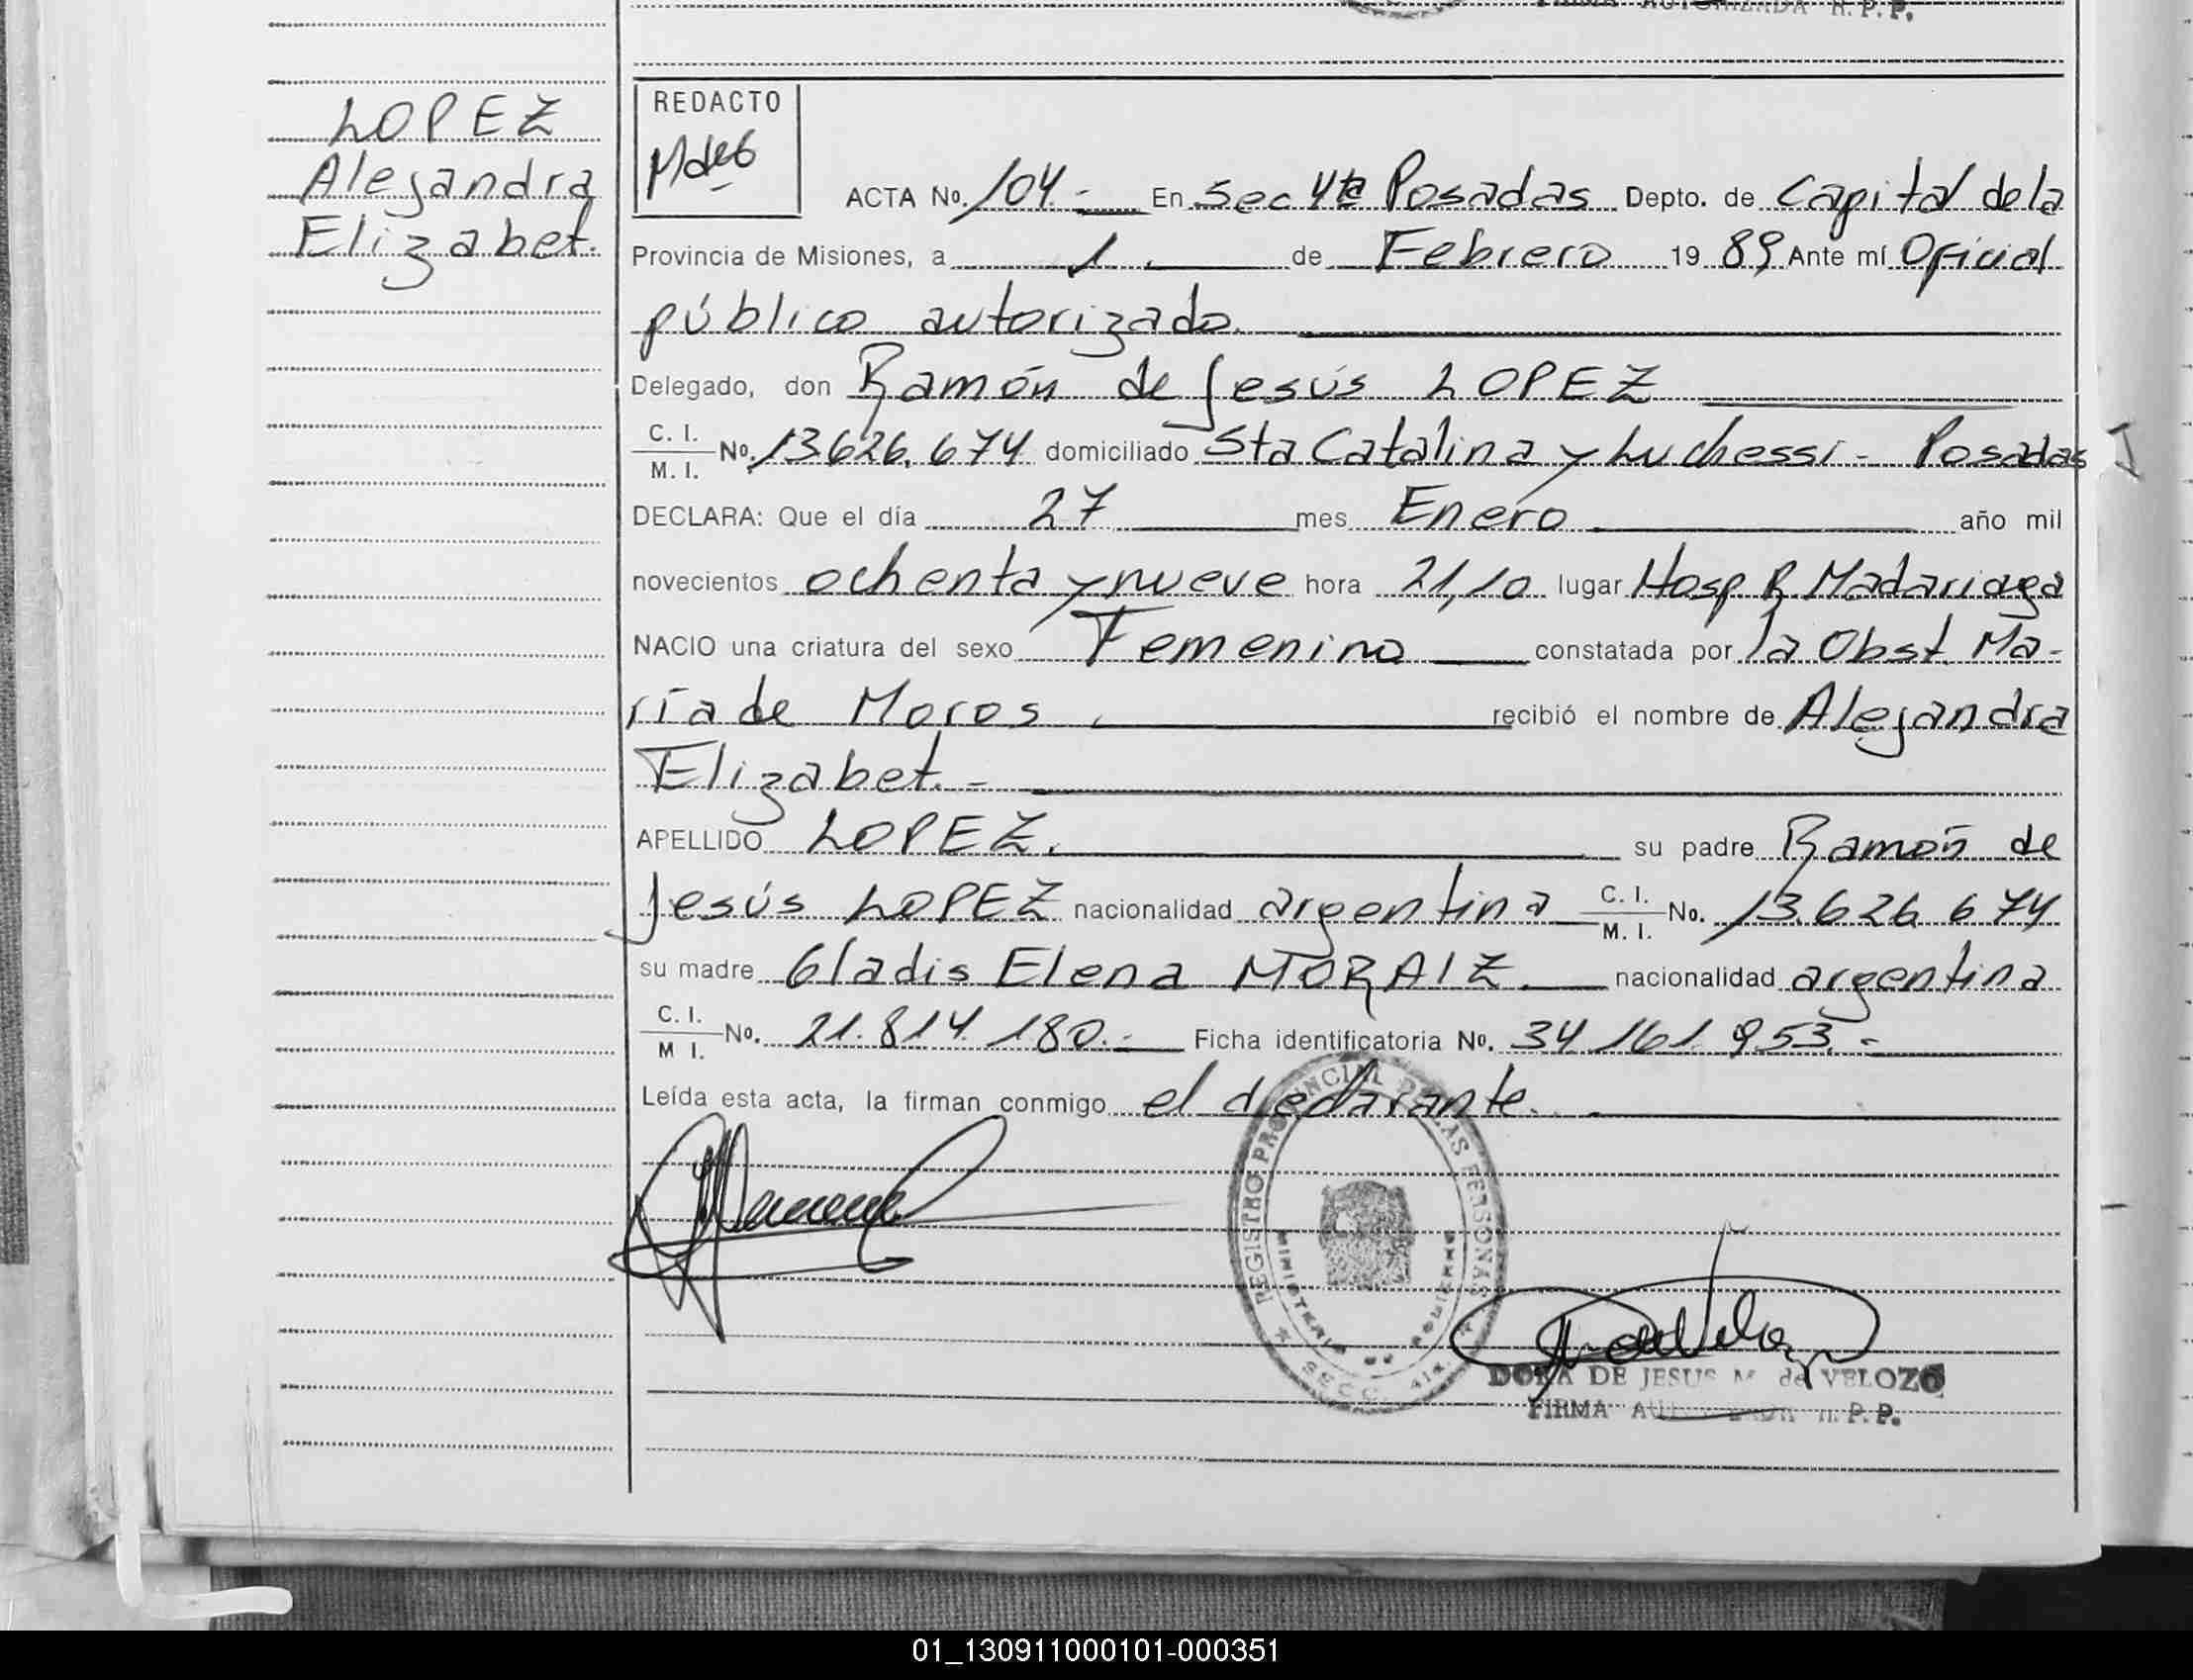 FIRMA AUTORIZADA R.P.P.
LOPEZ
Alejandra
Elizabet.
REDACTO
ACTA No. 104.- En Sec 4ta Posadas Depto. de Capital de la
Provincia de Misiones, a 1. de Febrero 1989 Ante mí Oficial
público autorizado.
Delegado, don Ramón de Jesús LOPEZ
C. I.
M. I. No. 13.626.674 domiciliado Sta Catalina y Luchessi - Posadas
DECLARA: Que el día 27 mes Enero año mil
novecientos ochenta y nueve hora 21,10 lugar Hosp R Madariaga
NACIO una criatura del sexo Femenino constatada por la Obst. Ma-
ría de Moros. recibió el nombre de Alejandra
Elizabet.-
APELLIDO LOPEZ. su padre Ramón de
Jesús LOPEZ nacionalidad argentina C. I.
M. I. No. 13.626.674
su madre Gladis Elena MORAIZ. nacionalidad argentina
C. I.
M I. No. 21.814.180.- Ficha identificatoria No. 34.161.953.-
Leída esta acta, la firman conmigo el declarante.
REGISTRO PROVINCIAL DE LAS PERSONAS
MINISTERIO DE GOBIERNO
SECC. 4ta.
DORA DE JESUS M. de VELOZO
FIRMA AUTORIZADA R.P.P.
01_130911000101-000351